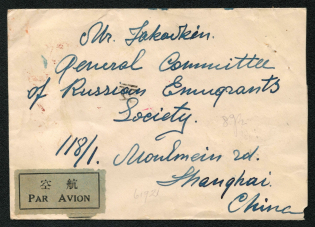 Mr. Jakovkin.
General Committee
of Russian Emigrants
Society.
118/1. Moulmein rd.
Shanghai.
China
空 航
PAR AVION